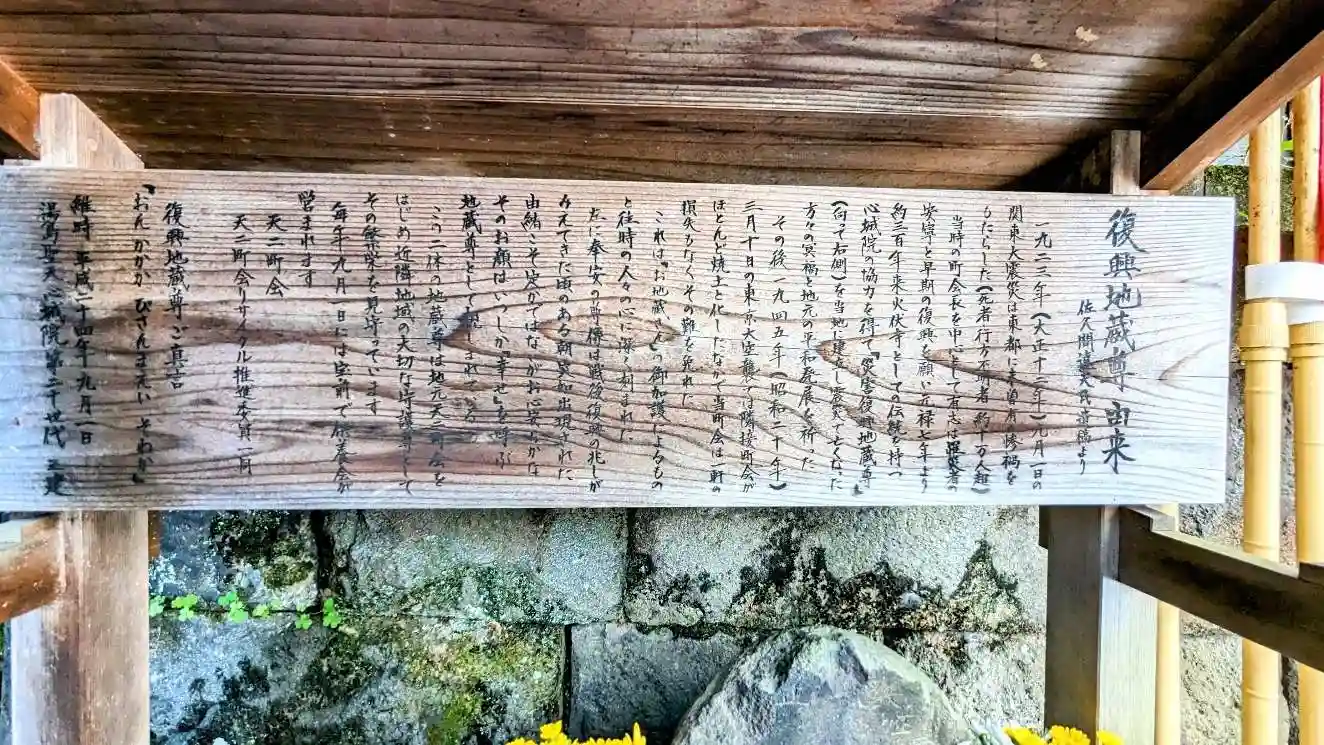 復興地蔵尊 由来
佐久間達夫氏遺稿より
一九二三年(大正十二年)九月一日の
関東大震災は東都に未曽有の惨禍を
もたらした(死者行方不明者 約十万人超)
当時の町会長を中心として有志は罹災者の
安寧と早期の復興を願い元禄七年より
約三百年来火伏寺としての伝統を持つ
心城院の協力を得て『災害復興地蔵尊』
(向って右側)を当地に建立し震災で亡くなった
方々の冥福と地元の平和発展を祈った
その後一九四五年(昭和二十年)
三月十日の東京大空襲では隣接町会が
ほとんど焼土と化したなかで当町会は一軒の
損失もなくその難を免れた
これは『お地蔵さん』の御加護によるもの
と往時の人々の心に深く刻まれた
左に奉安の尊像は戦後復興の兆しが
みえてきた頃のある朝突如出現された
由緒こそ定かではないがお心安らかな
そのお顔はいつしか『幸せ』を呼ぶ
地蔵尊として親しまれている
この二体の地蔵尊は地元天二町会を
はじめ近隣地域の大切な守護尊として
その繁栄を見守っています
毎年九月一日には宝前で供養会が
営まれます
天二町会
天二町会リサイクル推進委員一同
復興地蔵尊 ご真言
『おん かかか びさんまえい そわか』
維時 平成二十四年九月一日
湯島聖天心城院第二十世代 三建